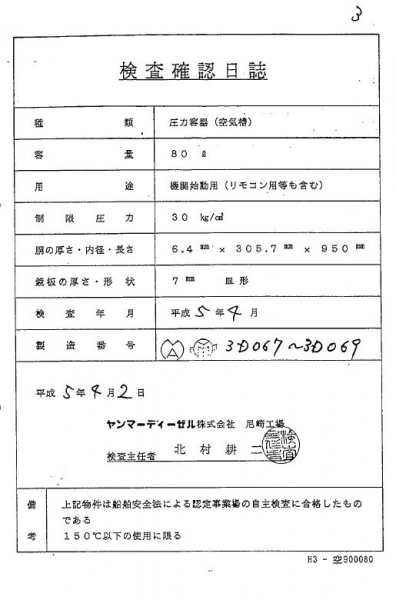 3
検査確認日誌
種類 圧力容器（空気槽）
容量 80 ℓ
用途 機関始動用（リモコン用等も含む）
制限圧力 30 kg/c㎡
胴の厚さ・内径・長さ 6.4 mm × 305.7 mm × 950 mm
鏡板の厚さ・形状 7 mm 皿形
検査年月 平成5年4月
製造番号 3D067～3D069
平成5年4月2日
ヤンマーディーゼル株式会社 尼崎工場
検査主任者 北村耕二
備考 上記物件は船舶安全法による認定事業場の自主検査に合格したもの
である
150℃以下の使用に限る
H3 - 空900080